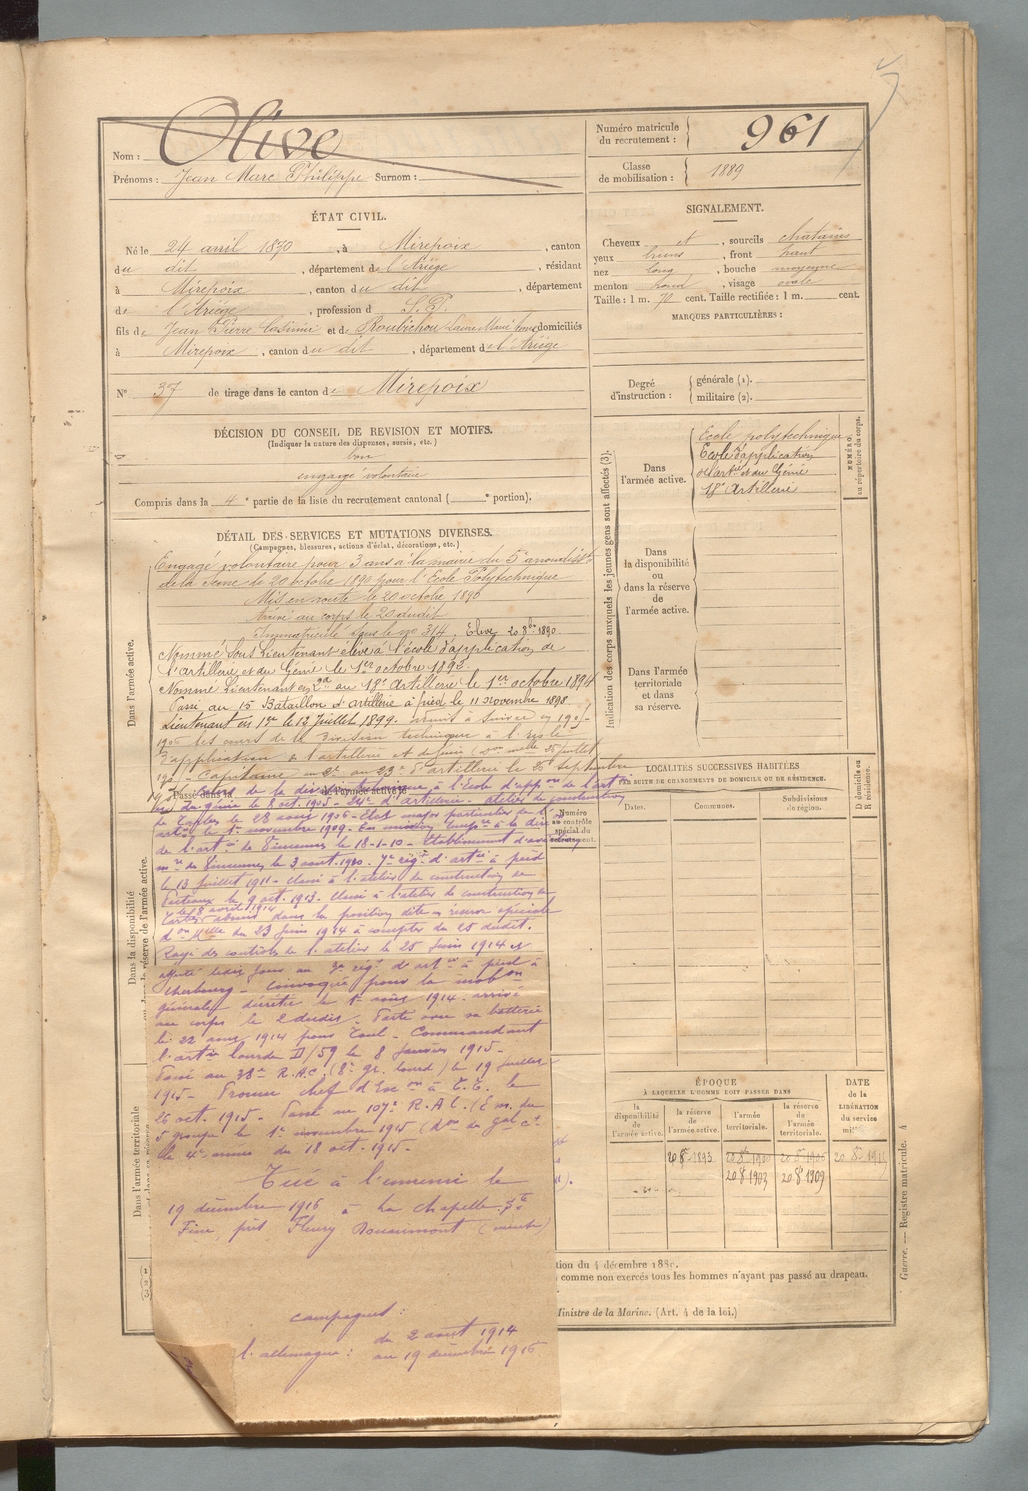 Nom : Olive
Prénoms : Jean Marc Philippe Surnom :
Numéro matricule du recrutement : 961
Classe de mobilisation : 1889
ÉTAT CIVIL.
Né le 24 avril 1870, à Mirepoix, canton
du dit, département de l'Ariège, résidant
à Mirepoix, canton du dit, département
de l'Ariège, profession d S.P.
fils de Jean Pierre Casimir et de Roubichou domiciliés
à Mirepoix, canton du dit, département de l'Ariège
N° 37 de tirage dans le canton de Mirepoix
SIGNALEMENT.
Cheveux et, sourcils chatains
yeux bruns, front haut
nez long, bouche moyenne
menton rond, visage ovale
Taille : 1 m. 70 cent. Taille rectifiée : 1 m. cent.
MARQUES PARTICULIÈRES :
Degré d'instruction : générale (1).
militaire (2).
DÉCISION DU CONSEIL DE REVISION ET MOTIFS.
(Indiquer la nature des dispenses, sursis, etc.)
bon
engagé volontaire
Compris dans la 4e partie de la liste du recrutement cantonal ( e portion).
DÉTAIL DES SERVICES ET MUTATIONS DIVERSES.
(Campagnes, blessures, actions d'éclat, décorations, etc.)
Engagé volontaire pour 3 ans à la mairie du 5e arrondisst
de la Seine le 20 octobre 1890 pour l'Ecole Polytechnique
Mis en route le 20 octobre 1890
Arrivé au corps le 20 dudit
Immatriculé sous le no 314. Elève 20 8bre 1890.
Nommé Sous Lieutenant élève à l'école d'application de
l'artillerie et du Génie le 1er octobre 1892.
Nommé Lieutenant en 2nd au 18e Artillerie le 1er octobre 1894
Passé au 15e Bataillon d'artillerie à pied le 11 novembre 1898
Lieutenant en 1er le 12 Juillet 1899. Admis à suivre en 1905-
1906 les cours de la Division technique à l'école
d'application de l'artillerie et du Génie
Capitaine en 2d au 23e d'artillerie le 25 septembre
Passé dans la
de l'armée active le
Cours de la division technique à l'Ecole d'appon de l'artie
et du génie le 8 oct. 1905 - 24e d'artillerie - atelier de construction
de Tarbes le 28 août 1906 - Etat major particulier de l'
artie le 1er novembre 1909. En mission
de l'artie de Vincennes le 18-1-10 - Etablissement
de Vincennes le 3 août 1910. 7e régt d'artie à pied
le 13 juillet 1911 - Classé à l'atelier de construction de
Puteaux le 9 oct. 1913. Classé à l'atelier de construction de
Tarbes le 8 avril 1914 dans la position dite en réserve spéciale
don Mlle du 23 Juin 1914 à compter du 25 dudit.
Rayé des contrôles de l'atelier le 25 Juin 1914 et
affecté ledit jour au régt d'artie à pied à
Cherbourg - Convoqué pour la mobon
générale décrétée le 1er août 1914. arrivé
au corps le 2 dudit. Parti avec sa batterie
le 22 août 1914 pour Toul. Commandant
l'artie lourde D/59 le 8 Janvier 1915 -
Passé au 38e R.A.C. (8e gr. lourd) le 19 Juillet
1915 - Promu chef d'Escon à T.T. le
26 oct. 1915 - Passé au 107e R.A.L. (E.m. du
5 groupe) le 1er novembre 1915 (Don du gal ct
la 4e armée du 18 oct. 1915 -
Tué à l'ennemi le
19 décembre 1916 à La Chapelle Ste
Fine, près Fleury Douaumont (Meuse)
campagnes :
l'allemagne : du 2 août 1914
au 19 décembre 1916
Indication des corps auxquels les jeunes gens sont affectés (3).
Dans l'armée active.
Ecole polytechnique
Ecole d'application
de l'artie et du Génie
18e Artillerie
NUMÉRO au répertoire du corps.
Dans la disponibilité ou dans la réserve de l'armée active.
Dans l'armée territoriale et dans sa réserve.
LOCALITÉS SUCCESSIVES HABITÉES
PAR SUITE DE CHANGEMENTS DE DOMICILE OU DE RÉSIDENCE.
Dates.
Communes.
Subdivisions de région.
D domicile ou R résidence.
Numéro au contrôle spécial du recrutement.
Dans l'armée active.
Dans la disponibilité
la réserve de l'armée active.
Dans l'armée territoriale
ÉPOQUE
À LAQUELLE L'HOMME DOIT PASSER DANS
la disponibilité de l'armée active.
la réserve de l'armée active.
l'armée territoriale.
la réserve de l'armée territoriale.
DATE de la LIBÉRATION du service
20 8e 1893
20 8e 1903
20 8e 1909
tion du 4 décembre 188
comme non exercés tous les hommes n'ayant pas passé au drapeau.
Ministre de la Marine. (Art. 4 de la loi.)
Guerre. — Registre matricule. 4